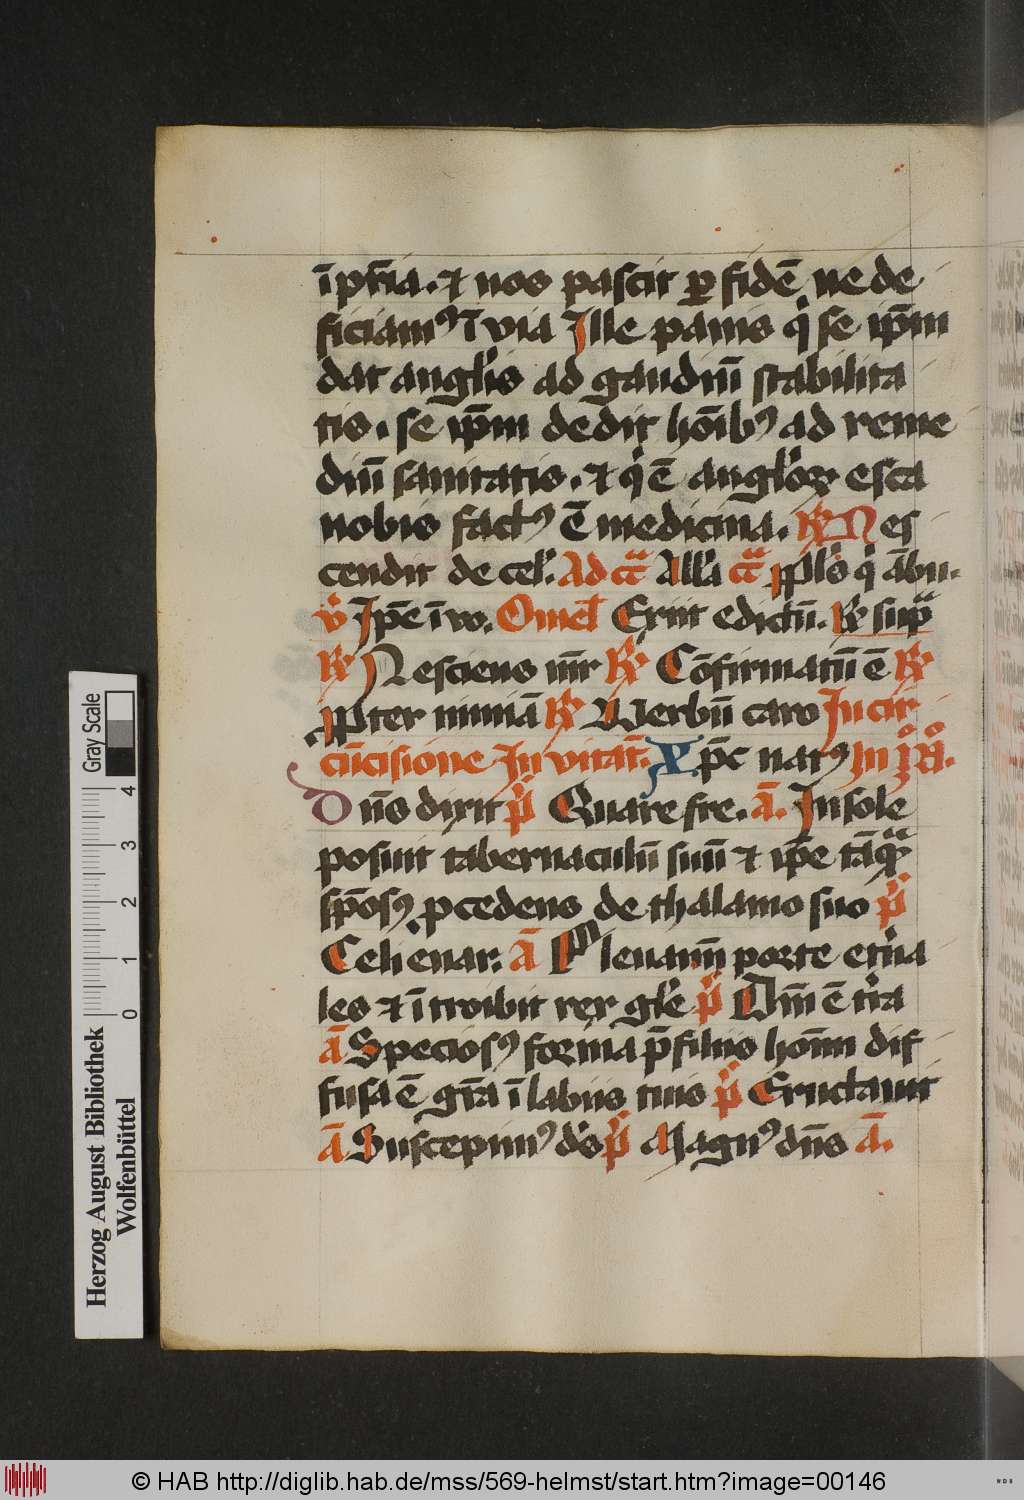 ī pr̄ia. ⁊ nos pascit ꝑ fidē ne de
ficiamꝰ ī via Ille panis q̇ se ip̄m
dat angl̓is ad gaudiū stabilita
tis. se ip̄m dedit hōibꝰ ad reme
diū sanitatis. ⁊ q̇ ē angl̓oꝝ esca
nobis factꝰ ē medicina. ℟ Des
cendit de cel̓. Ad cͣ All̓a cͣ ppl̓s q̇ ābu.
v̓ Ip̄e ī vo. Omel̓ Exiit edictū. ℟ supͣ
℟ Nesciens mr̄ ℟ Cōfirmatū ē ℟
ꝓpter nimiā ℟ Verbū caro In cir
cūcisione Invitat̄. Xp̄c natꝰ In j̊ n̊.
Dn̄s dixit p̄s Quare fre. ā. In sole
posuit tabernaculū suū ⁊ ip̄e tāqͣꝫ
spōsꝰ ꝓcedens de thalamo suo p̄s
Celi enar. ā Elevamī porte et̓na
les ⁊ ītroibit rex gl̓e p̄s Dn̄i ē tr̄a
ā Speciosꝰ forma p̄ filiis hoīm dif
fusa ē gr̄a ī labiis tuis p̄s Eructauit
ā Suscepimꝰ ds̄ p̄s Magnꝰ dn̄s ā.
Herzog August Bibliothek
Wolfenbüttel
0 1 2 3 4
Gray Scale
© HAB http://diglib.hab.de/mss/569-helmst/start.htm?image=00146